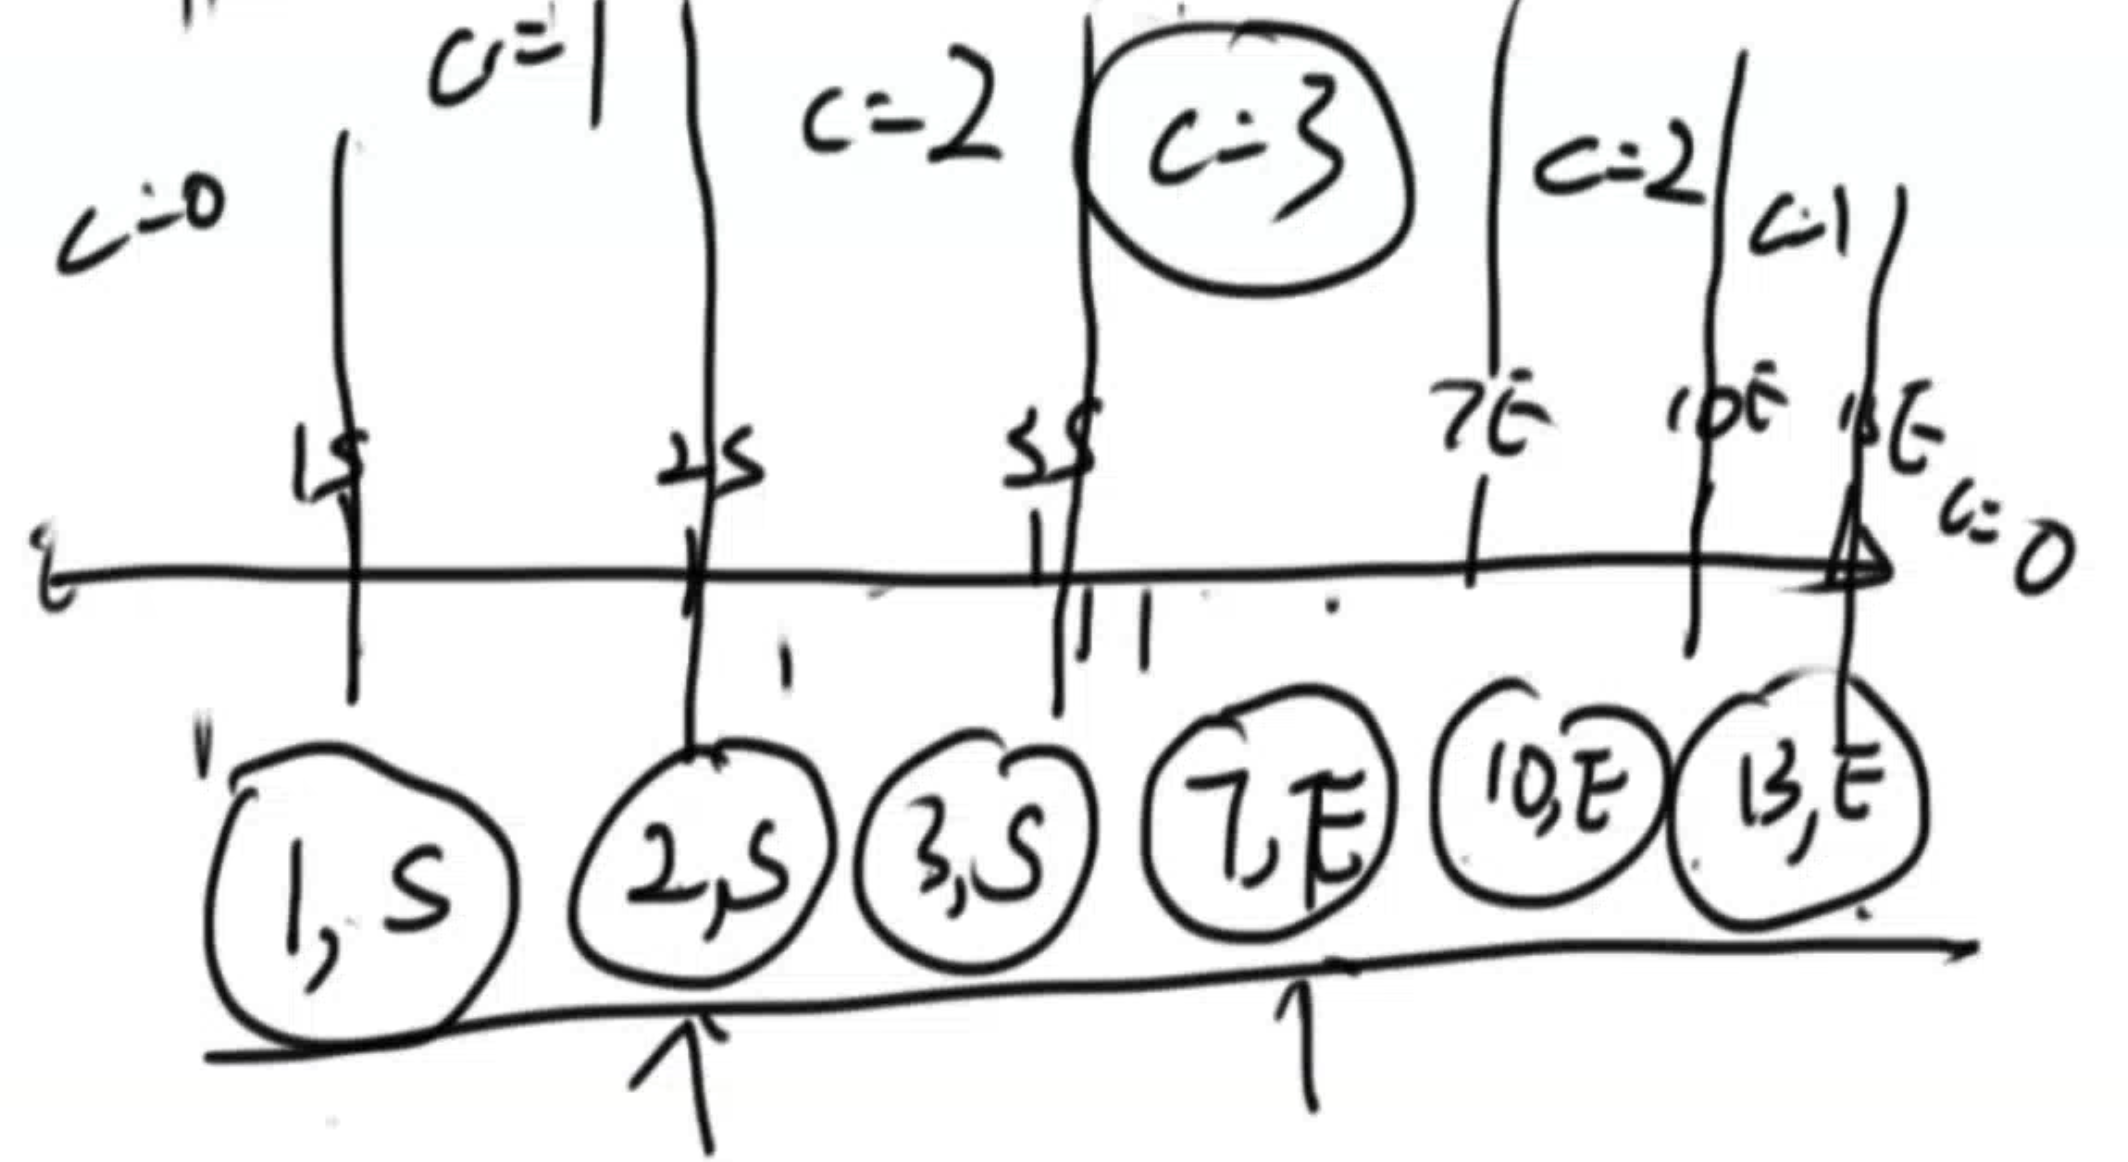 c=0 c=1 c=2 c=3 c=2 c=1
1S 2S 3S 7E 10E 13E
c=0
1, S 2,S 3,S 7,E 10,E 13,E